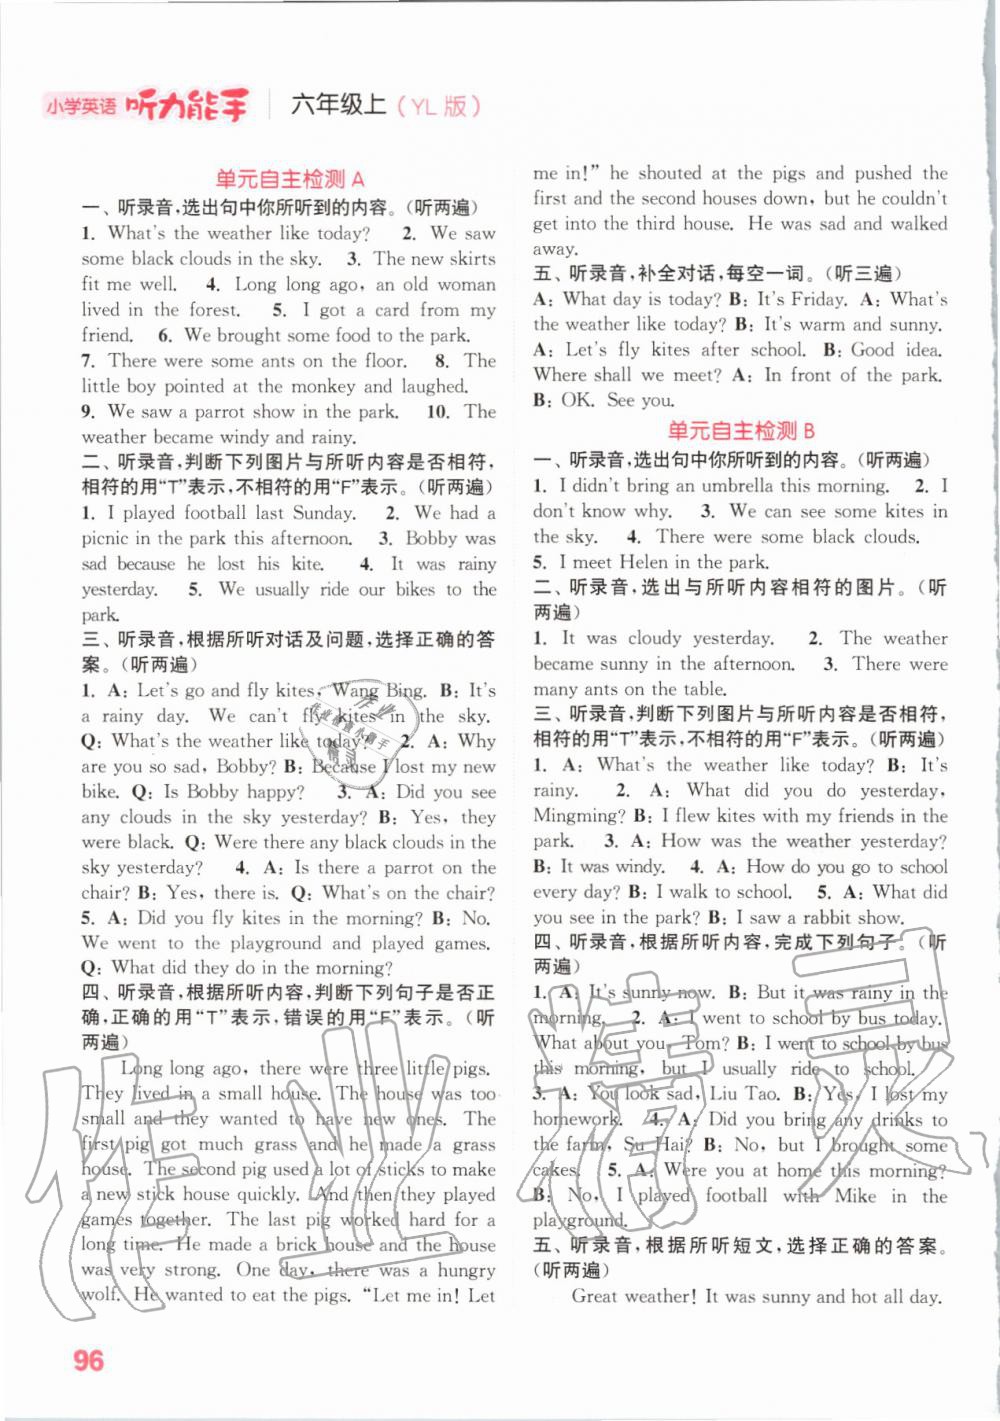 小学英语 听力能手 六年级上（YL版）
单元自主检测 A
一、听录音，选出句中你所听到的内容。（听两遍）
1. What's the weather like today? 2. We saw
some black clouds in the sky. 3. The new skirts
fit me well. 4. Long long ago, an old woman
lived in the forest. 5. I got a card from my
friend. 6. We brought some food to the park.
7. There were some ants on the floor. 8. The
little boy pointed at the monkey and laughed.
9. We saw a parrot show in the park. 10. The
weather became windy and rainy.
二、听录音，判断下列图片与所听内容是否相符，
相符的用“T”表示，不相符的用“F”表示。（听两遍）
1. I played football last Sunday. 2. We had a
picnic in the park this afternoon. 3. Bobby was
sad because he lost his kite. 4. It was rainy
yesterday. 5. We usually ride our bikes to the
park.
三、听录音，根据所听对话及问题，选择正确的答
案。（听两遍）
1. A: Let's go and fly kites, Wang Bing. B: It's
a rainy day. We can't fly kites in the sky.
Q: What's the weather like today? 2. A: Why
are you so sad, Bobby? B: Because I lost my new
bike. Q: Is Bobby happy? 3. A: Did you see
any clouds in the sky yesterday? B: Yes, they
were black. Q: Were there any black clouds in the
sky yesterday? 4. A: Is there a parrot on the
chair? B: Yes, there is. Q: What's on the chair?
5. A: Did you fly kites in the morning? B: No.
We went to the playground and played games.
Q: What did they do in the morning?
四、听录音，根据所听内容，判断下列句子是否正
确，正确的用“T”表示，错误的用“F”表示。（听
两遍）
Long long ago, there were three little pigs.
They lived in a small house. The house was too
small and they wanted to have new ones. The
first pig got much grass and he made a grass
house. The second pig used a lot of sticks to make
a new stick house quickly. And then they played
games together. The last pig worked hard for a
long time. He made a brick house and the house
was very strong. One day, there was a hungry
wolf. He wanted to eat the pigs. “Let me in! Let
me in!” he shouted at the pigs and pushed the
first and the second houses down, but he couldn't
get into the third house. He was sad and walked
away.
五、听录音，补全对话，每空一词。（听三遍）
A: What day is today? B: It's Friday. A: What's
the weather like today? B: It's warm and sunny.
A: Let's fly kites after school. B: Good idea.
Where shall we meet? A: In front of the park.
B: OK. See you.
单元自主检测 B
一、听录音，选出句中你所听到的内容。（听两遍）
1. I didn't bring an umbrella this morning. 2. I
don't know why. 3. We can see some kites in
the sky. 4. There were some black clouds.
5. I meet Helen in the park.
二、听录音，选出与所听内容相符的图片。（听
两遍）
1. It was cloudy yesterday. 2. The weather
became sunny in the afternoon. 3. There were
many ants on the table.
三、听录音，判断下列图片与所听内容是否相符，
相符的用“T”表示，不相符的用“F”表示。（听两遍）
1. A: What's the weather like today? B: It's
rainy. 2. A: What did you do yesterday,
Mingming? B: I flew kites with my friends in the
park. 3. A: How was the weather yesterday?
B: It was windy. 4. A: How do you go to school
every day? B: I walk to school. 5. A: What did
you see in the park? B: I saw a rabbit show.
四、听录音，根据所听内容，完成下列句子。（听
两遍）
1. A: It's sunny now. B: But it was rainy in the
morning. 2. A: I went to school by bus today.
What about you, Tom? B: I went to school by bus
this morning, but I usually ride to school.
3. A: You look sad, Liu Tao. B: Yes, I lost my
homework. 4. A: Did you bring any drinks to
the farm, Su Hai? B: No, but I brought some
cakes. 5. A: Were you at home this morning?
B: No, I played football with Mike in the
playground.
五、听录音，根据所听短文，选择正确的答案。
（听两遍）
Great weather! It was sunny and hot all day.
96
作业精灵